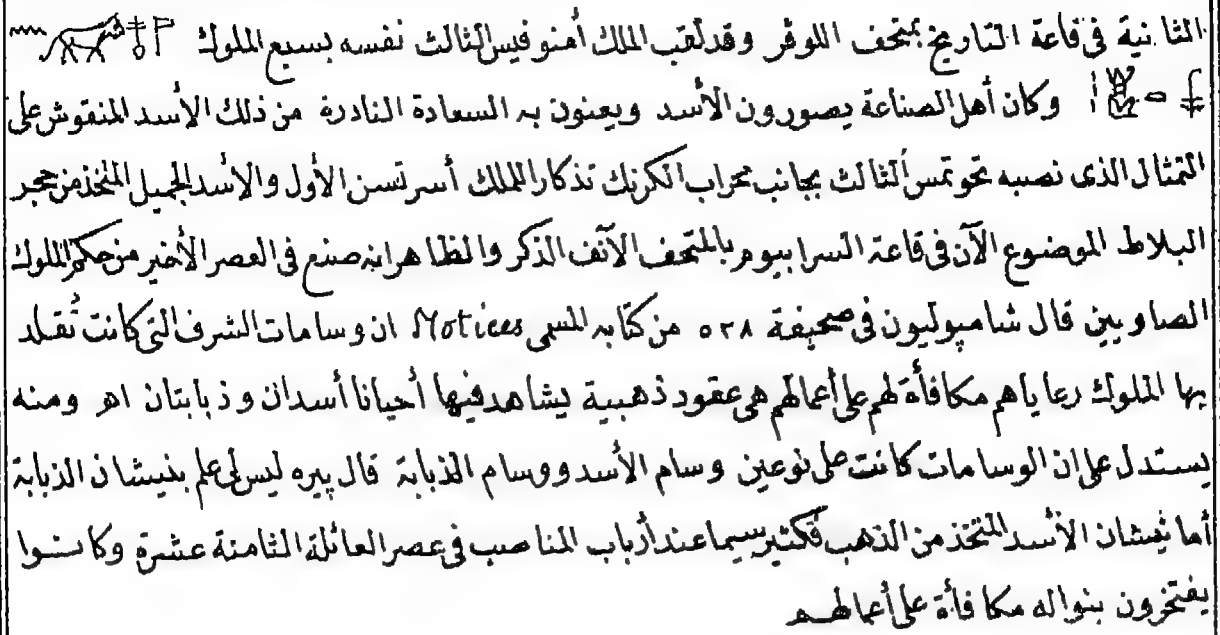 الثانية فى قاعة التاريخ بمتحف اللوڤر وقد لقب الملك أمنوفيس الثالث نفسه بسبع الملوك
وكان أهل الصناعة يصورون الأسد ويعنون به السعادة النادرة من ذلك الأسد المنقوش على
التمثال الذى نصبه تحوتمس الثالث بجانب محراب الكرنك تذكارا للملك أسرتسن الأول والأسد الجميل المتخذ من حجر
البلاط الموضوع الآن فى قاعة السرابيوم بالمتحف الآنف الذكر والظاهر انه صنع فى العصر الأخير من حكم الملوك
الصاويين قال شامپوليون فى صحيفة ٥٢٨ من كتابه المسمى Notices ان وسامات الشرف التى كانت تُقلد
بها الملوك رعاياهم مكافأة لهم على أعمالهم هى عقود ذهبية يشاهد فيها أحيانا أسدان وذبابتان اهر ومنه
يستدل على ان الوسامات كانت على نوعين وسام الأسد ووسام الذبابة قال پيره ليس لى علم بنيشان الذبابة
أما نيشان الأسد المتخذ من الذهب فكثير سيما عند أرباب المناصب فى عصر العائلة الثامنة عشرة وكانوا
يفتخرون بنواله مكافأة على أعمالهم